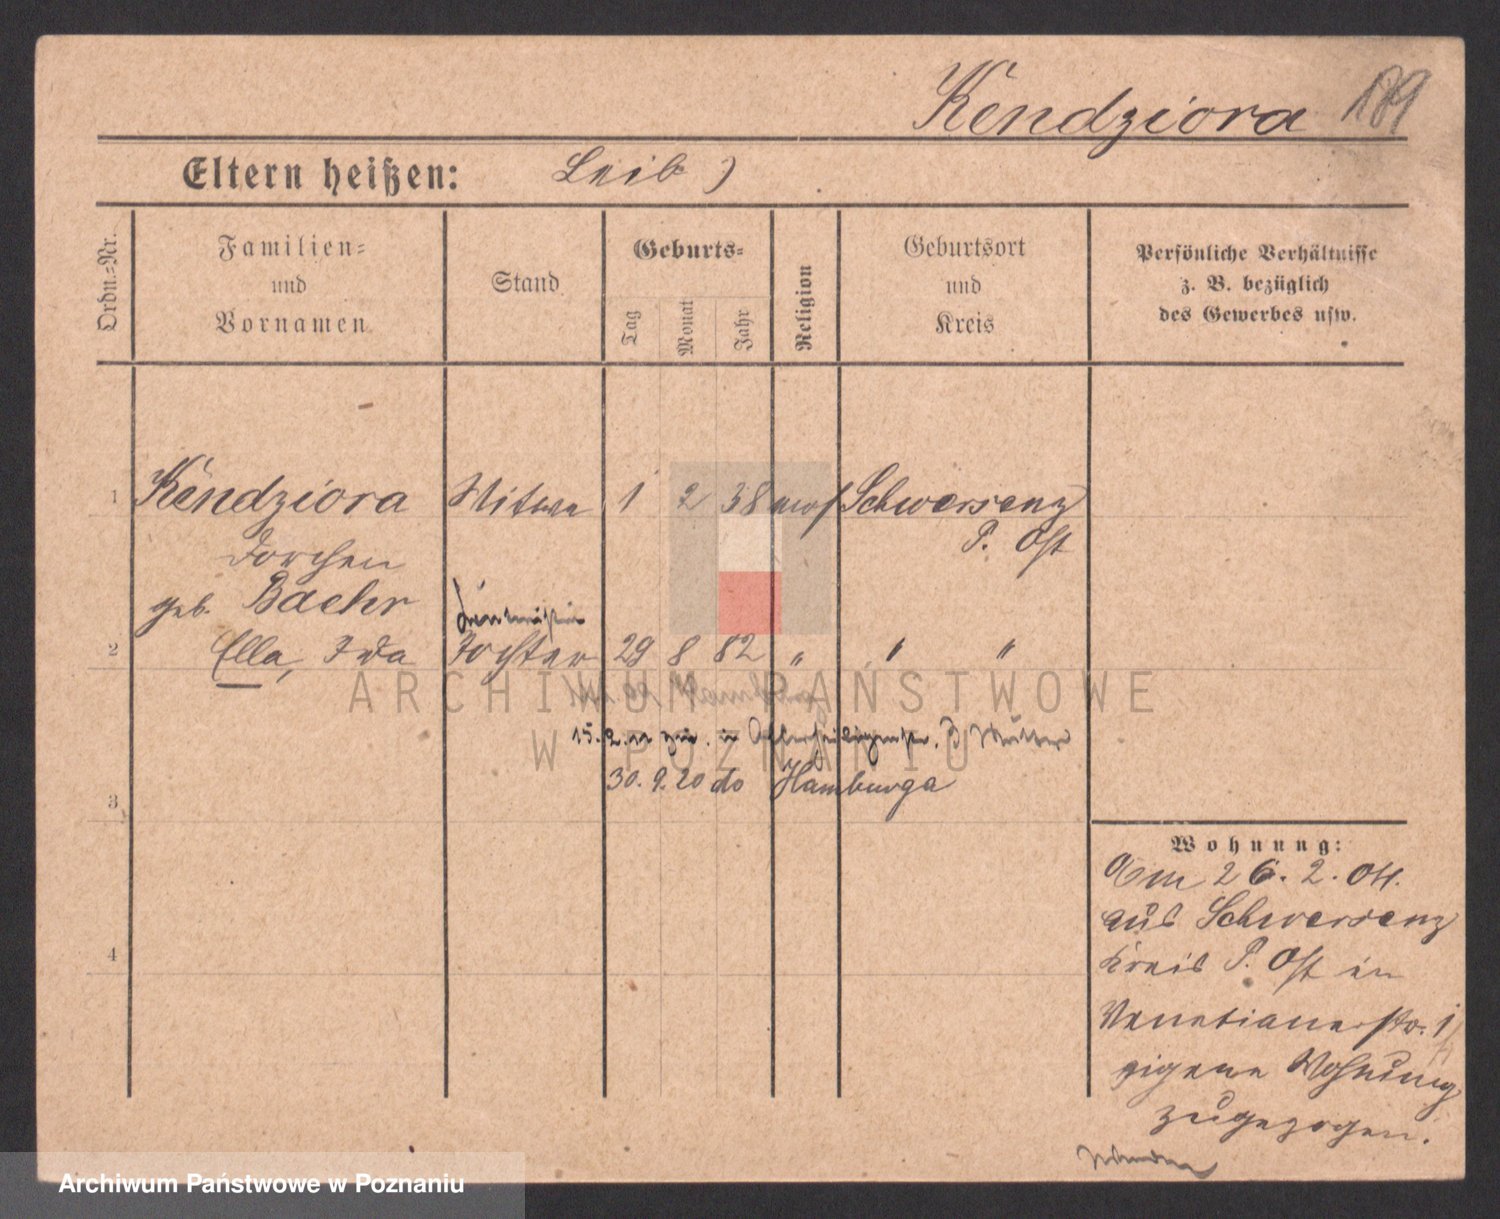 Kendziora 189
Eltern heißen: Leib )
Ordn.-Nr.
Familien-
und
Vornamen
Stand
Geburts-
Tag
Monat
Jahr
Religion
Geburtsort
und
Kreis
Persönliche Verhältnisse
z. B. bezüglich
des Gewerbes usw.
1 Kendziora Witwe 1 2 38 mos Schwersenz
Dorchen P. Ost
geb. Baehr
2 Ella, Ida Tochter 29 8 82 " " "
ARCHIWUM PAŃSTWOWE
W POZNANIU
15. 2. in
30. 9. 20 do Hamburga
3
4
Wohnung:
Am 26. 2. 04.
aus Schwersenz
Kreis P. Ost in
Venetianerstr. 1
eigene Wohnung
zugezogen.
Archiwum Państwowe w Poznaniu